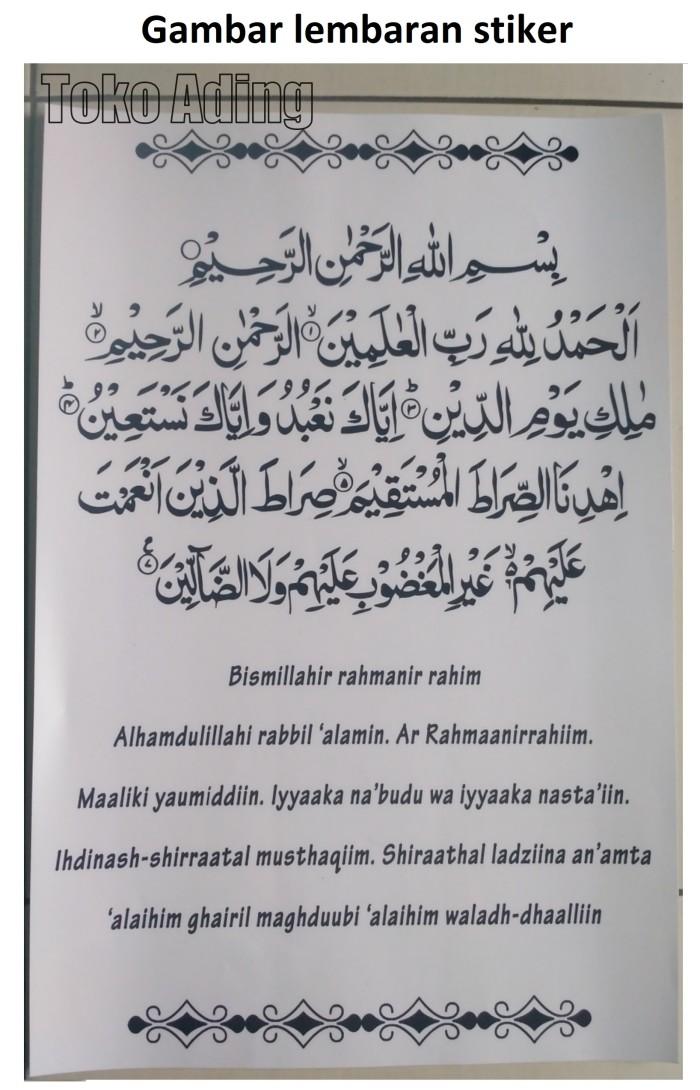 Gambar lembaran stiker
Toko Ading
بِسْمِ اللهِ الرَّحْمٰنِ الرَّحِيْمِ
اَلْحَمْدُ لِلّٰهِ رَبِّ الْعٰلَمِيْنَۙ ١ الرَّحْمٰنِ الرَّحِيْمِۙ ٢
مٰلِكِ يَوْمِ الدِّيْنِۗ ٣ اِيَّاكَ نَعْبُدُ وَاِيَّاكَ نَسْتَعِيْنُۗ ٤
اِهْدِنَا الصِّرَاطَ الْمُسْتَقِيْمَۙ ٥ صِرَاطَ الَّذِيْنَ اَنْعَمْتَ
عَلَيْهِمْ ەۙ غَيْرِ الْمَغْضُوْبِ عَلَيْهِمْ وَلَا الضَّاۤلِّيْنَࣖ ٧
Bismillahir rahmanir rahim
Alhamdulillahi rabbil ‘alamin. Ar Rahmaanirrahiim.
Maaliki yaumiddiin. Iyyaaka na’budu wa iyyaaka nasta’iin.
Ihdinash-shirraatal musthaqiim. Shiraathal ladziina an’amta
‘alaihim ghairil maghduubi ‘alaihim waladh-dhaalliin